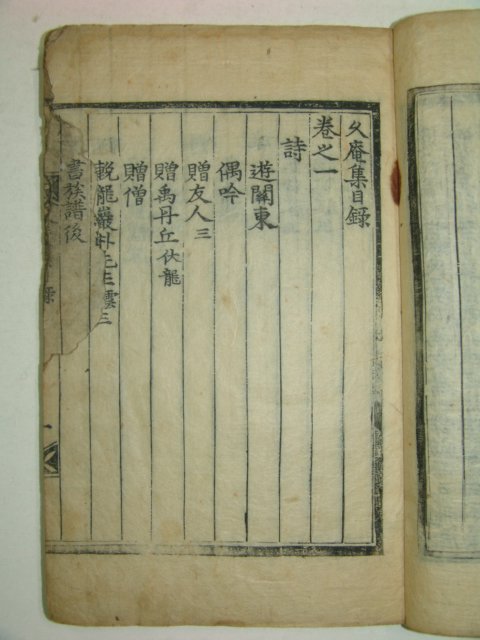 久庵集目録
卷之一
詩
遊關東
偶吟
贈友人三
贈禹丹丘伏龍
贈僧
輓龍巖朴 雲三
書族譜後